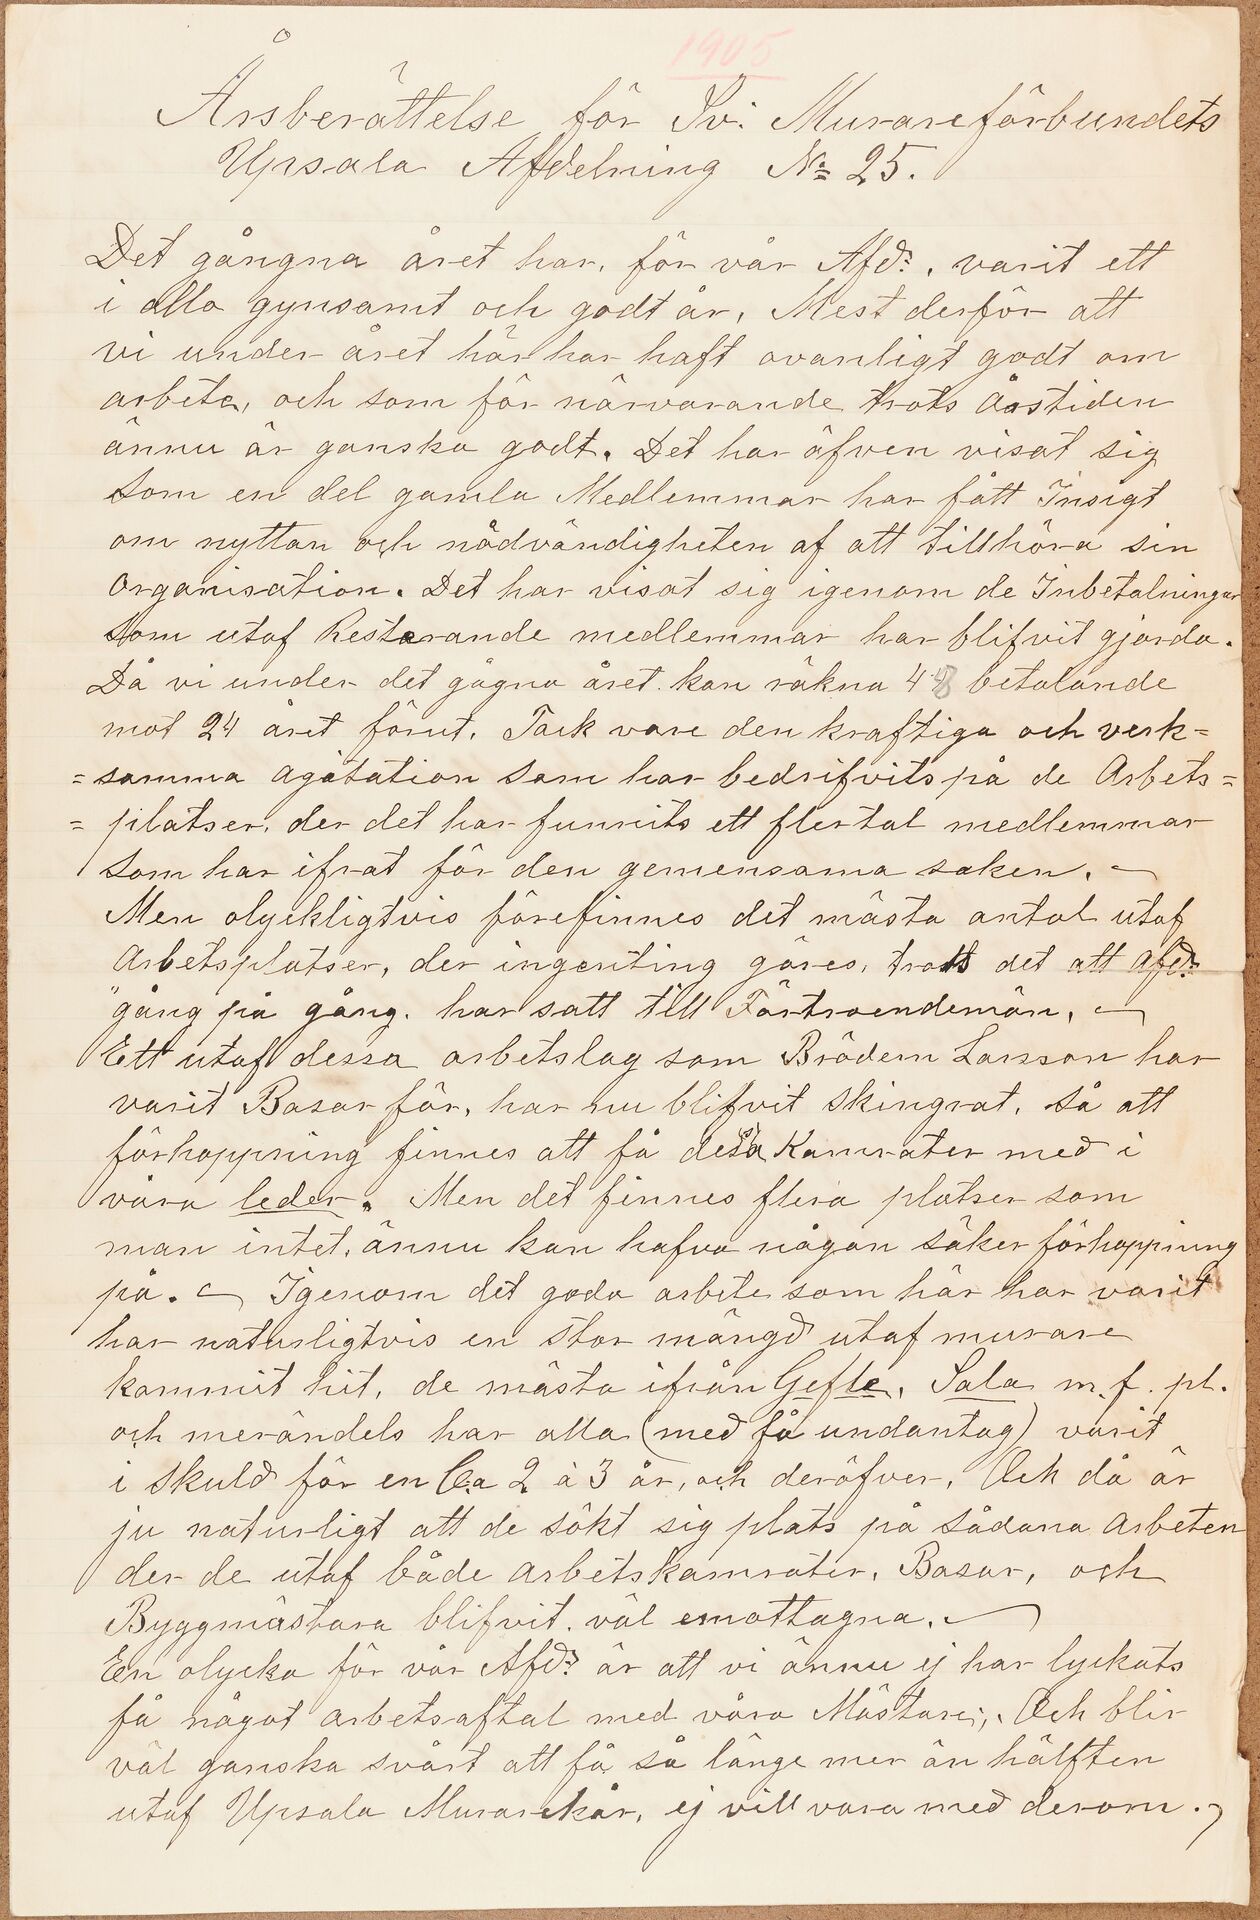 1905
Årsberättelse för Sv. Murareförbundets
Upsala Afdelning No 25.
Det gångna året har, för vår Afd:, varit ett
i allo gynsamt och godt år, Mest derför att
vi under året här har haft ovanligt godt om
arbete, och som för närvarande trots Årstiden
ännu är ganska godt. Det har äfven visat sig
som en del gamla Medlemmar har fått Insigt
om nyttan och nödvändigheten af att tillhöra sin
Organisation. Det har visat sig igenom de Inbetalningar
som utaf Resterande medlemmar har blifvit gjorda.
Då vi under det gågna året kan räkna 48 betalande
mot 24 året förut. Tack vare den kraftiga och verk=
=samma agitation som har bedrifvits på de Arbets=
=platser, der det har funnits ett flertal medlemmar
som har ifrat för den gemensama saken.
Men olyckligtvis förefinnes det mästa antal utaf
Arbetsplatser, der ingenting göres, trots det att Afd:
gång på gång. har satt till Förtroendemän.
Ett utaf dessa arbetslag som Bröderna Larsson har
varit Basar för, har nu blifvit skingrat, så att
förhoppning finnes att få dessa Kamrater med i
våra leder. Men det finnes flera platser som
man intet, ännu kan hafva någon säker förhoppning
på. Igenom det goda arbete som här har varit
har naturligtvis en stor mängd utaf murare
kommit hit, de mästa ifrån Gefle, Sala m. f. pl.
och merändels har alla (med få undantag) varit
i skuld för en Ca 2 à 3 år, och deröfver, Och då är
ju naturligt att de sökt sig plats på sådana arbeten
der de utaf både arbetskamrater, Basar, och
Byggmästara blifvit väl emottagna.
En olycka för vår Afd: är att vi ännu ej har lyckats
få något arbetsaftal med våra Mästare; Och blir
väl ganska svårt att få så länge mer än hälften
utaf Upsala Murarekår, ej vill vara med derom.